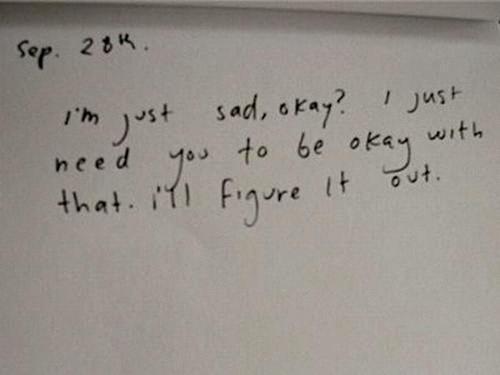 Sep. 28th.
I'm just sad, okay? I just
need you to be okay with
that. i'll figure it out.